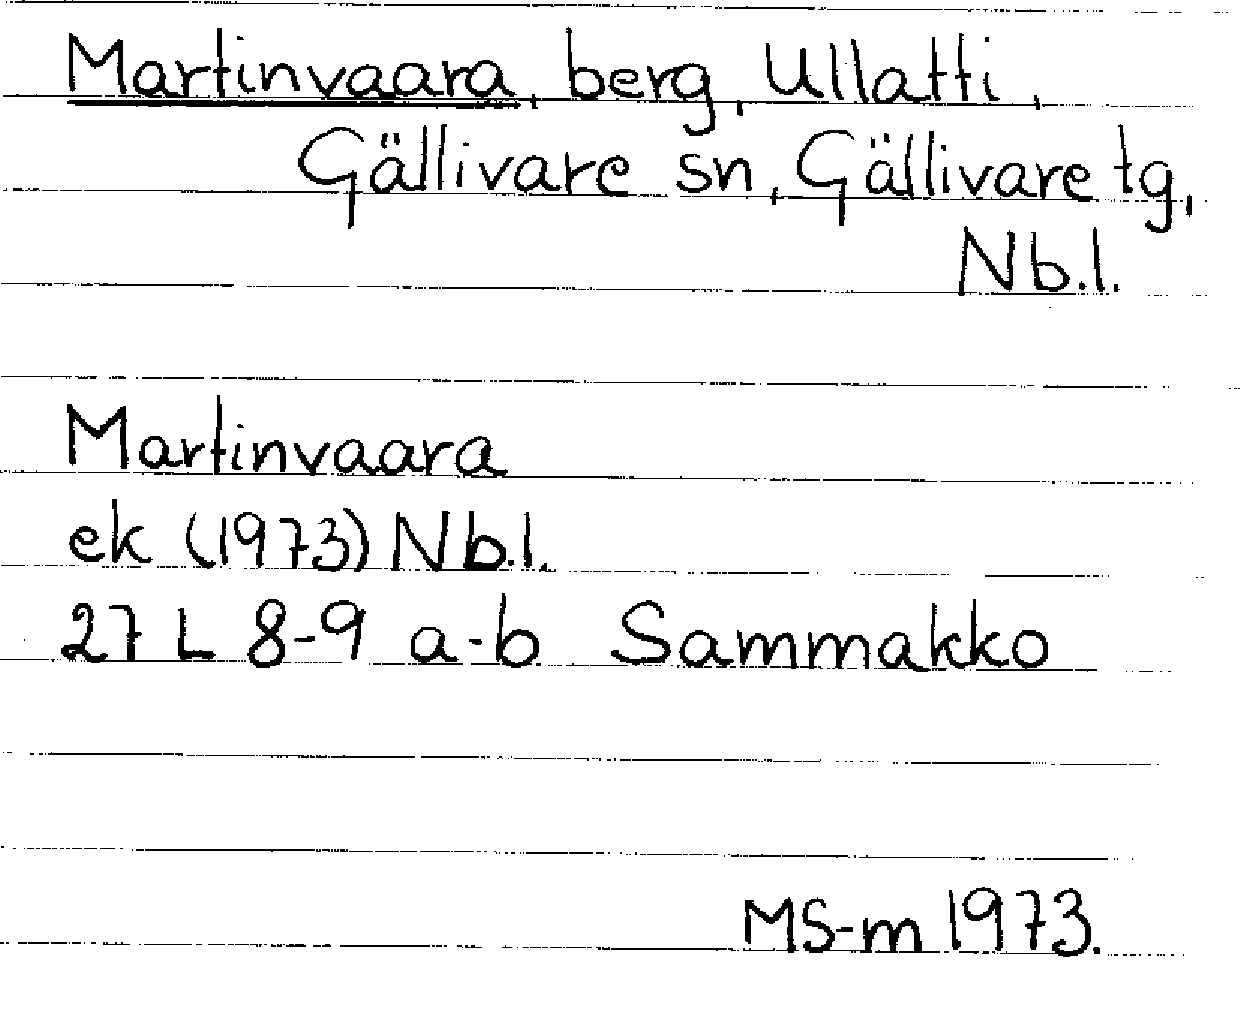 Martinvaara, berg, Ullatti,
Gällivare sn, Gällivare tg,
Nb.l.
Martinvaara
ek (1973) Nb.l.
27 L 8-9 a-b Sammakko
MS-m 1973.